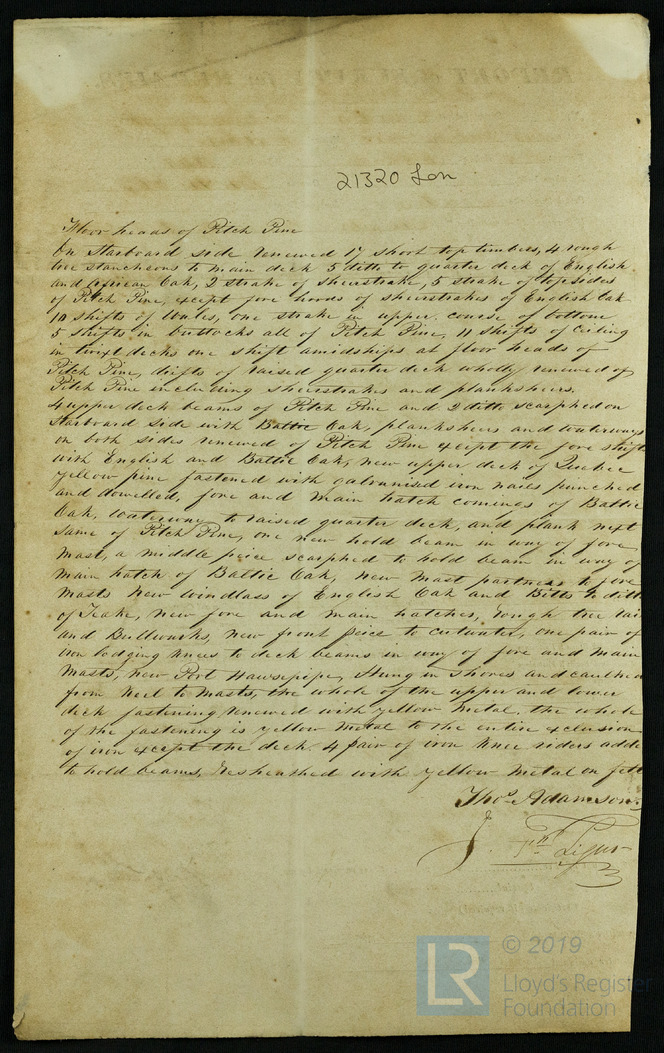 21320 Lon
Floor heads of Pitch Pine
On Starboard side renewed 17 short top timbers, 4 rough
tree stancheons to main deck 5 ditto to quarter deck of English
and African Oak, 2 strake of sheerstrake, 5 strake of topsides
of Pitch Pine, except fore hoods of sheerstrakes of English Oak
10 shifts of Wales, one strake in upper course of bottom
5 shifts in buttocks all of Pitch Pine, 11 shifts of Ceiling
in twixt decks one shift amidships at floor heads of
Pitch Pine, drifts of raised quarter deck wholly renewed of
Pitch Pine including sheerstrakes and planksheers.
4 upper deck beams of Pitch Pine and 2 ditto scarphed on
Starboard side with Baltic Oak, planksheers and waterways
on both sides renewed of Pitch Pine except the fore shifts
with English and Baltic Oak, new upper deck of Quebec
yellow pine fastened with galvanised iron nails punched
and dowelled, fore and main hatch comings of Baltic
Oak, waterway to raised quarter deck, and plank next
same of Pitch Pine, one new hold beam in way of fore
Mast, a middle peice scarphed to hold beam in way of
main hatch of Baltic Oak, new mast partners to fore
masts New windlass of English Oak and Bitts to ditto
of Teake, new fore and main hatches, rough tree rail
and Bullwarks, new front peice to cutwater, one pair of
iron lodging knees to deck beams in way of fore and main
Masts, new Port Hawsepipe, Hung in Shores and caulked
from Keel to Masts, the whole of the upper and lower
deck fastening renewed with yellow metal, the whole
of the fastening is yellow metal to the entire exclusion
of iron except the deck. 4 pair of iron knee riders adde
to hold beams, Resheathed with yellow Metal on felt
Thos. Adamson
© 2019
LR
Lloyd's Register
Foundation